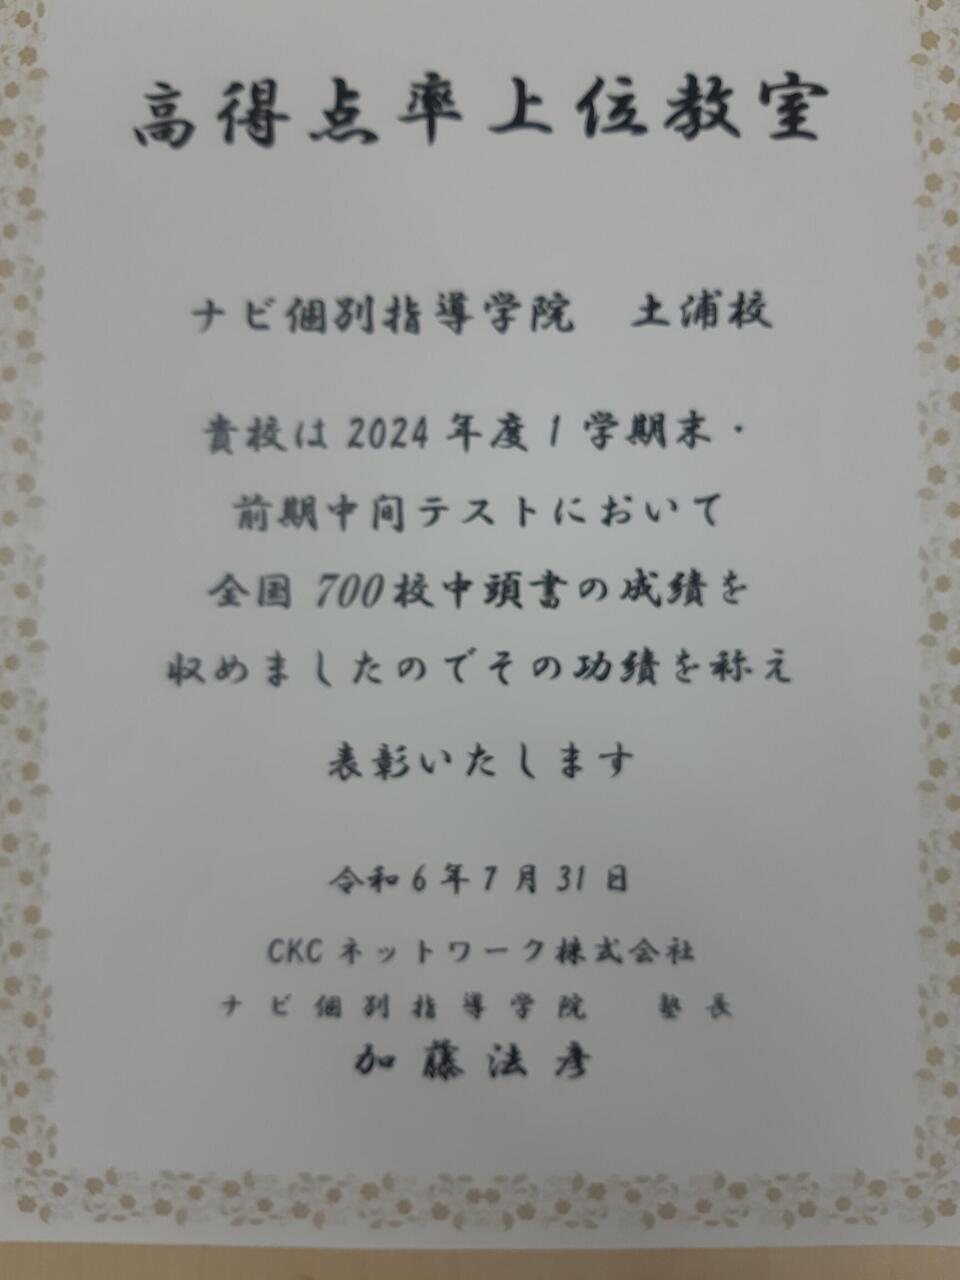 高得点率上位教室
ナビ個別指導学院　土浦校
貴校は2024年度1学期末・
前期中間テストにおいて
全国700校中頭書の成績を
収めましたのでその功績を称え
表彰いたします
令和6年7月31日
CKCネットワーク株式会社
ナビ個別指導学院　塾長
加藤法彦